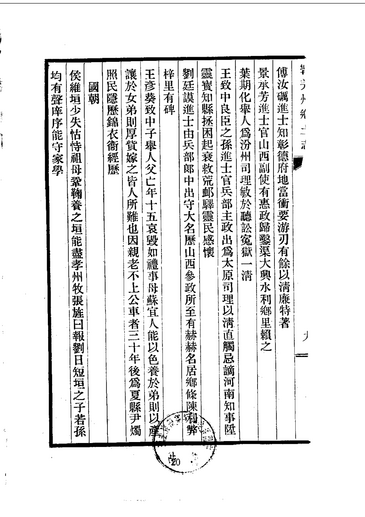 傅汝礪進士知彰德府地當衝要游刃有餘以清廉特著
景承芳進士官山西副使有惠政歸鑿渠大興水利鄉里賴之
葉期化舉人爲汾州司理敏於聽訟冤獄一清
王致中良臣之孫進士官兵部主政出爲太原司理以清直觸忌謫河南知事陞
靈寳知縣拯困起衰救荒郵驛靈民感懷
劉廷謨進士由兵部郎中出守大名歷山西參政所至有赫赫名居鄉條陳利弊
梓里有碑
王彥葵致中子舉人父亡年十五哀毀如禮事母蘇宜人能以色養於弟則以產
讓於女弟則厚貲嫁之皆人所難也因親老不上公車者三十年後爲夏縣尹燭
照民隱歷錦衣衛經歷
國朝
侯維垣少失怙恃祖母鞏鞠養之垣能盡孝州牧張旌曰報劉日短垣之子若孫
均有聲庠序能守家學
20